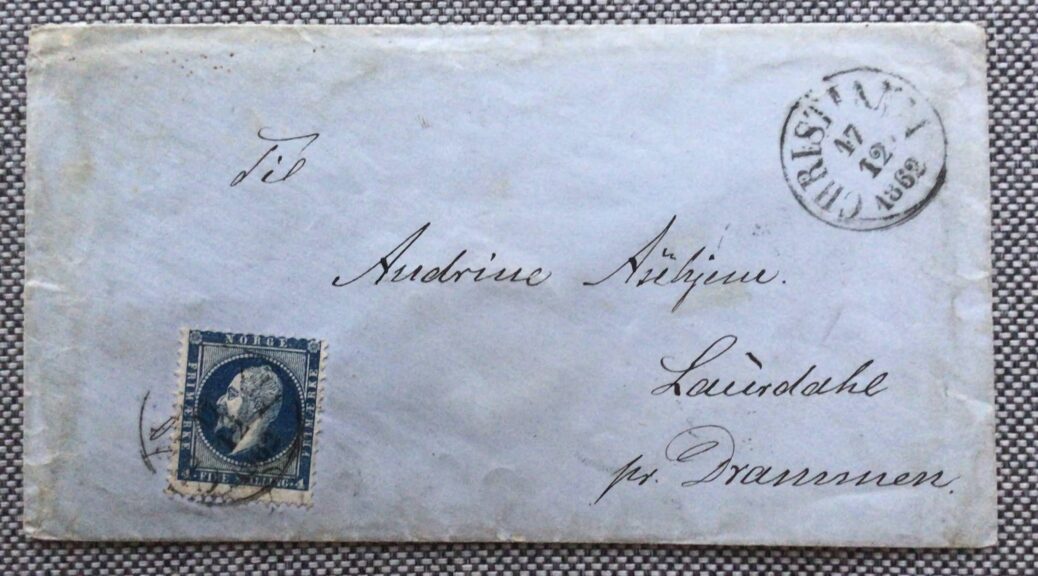 CHRISTIANIA
17
12
1862
Til
Andrine
Laurdahl
pr. Drammen.
NORGE
FRIMÆRKE
FRIMÆRKE
FIRE SKILLING